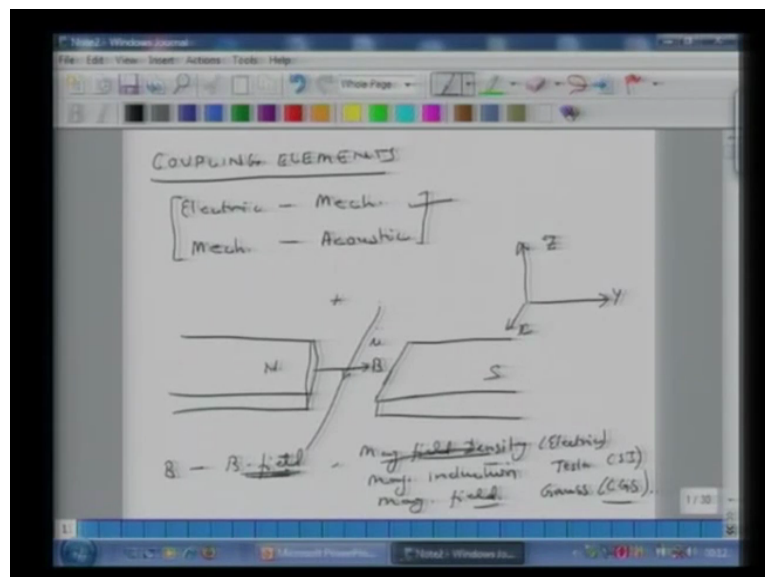 Note2 - Windows Journal
File Edit View Insert Actions Tools Help
Whole Page
COUPLING ELEMENTS
Electric - Mech.
Mech. - Acoustic
Z
Y
X
+
N
B
S
B - B-field - Mag field density (Electric)
mag. induction Tesla (SI)
mag. field. Gauss (CGS).
1 / 30
1
Microsoft PowerPo...
Note2 - Windows Jo...